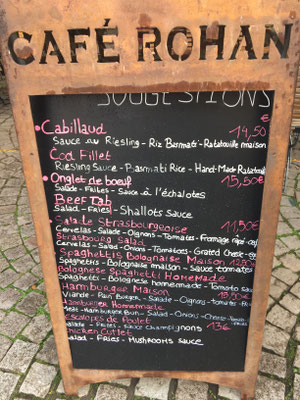 CAFÉ ROHAN
SUGGESTIONS
€
• Cabillaud 14,50
Sauce au Riesling - Riz Basmati - Ratatouille maison
Cod Fillet
Riesling Sauce - Basmati Rice - Hand-Made Ratatouil
• Onglet de boeuf 15,50€
Salade - Frites - Sauce à l'échalotes
Beef Tab
Salad - Fries - Shallots Sauce
Salade Strasbourgeoise 11,50€
Cervelas - Salade - Oignons - Tomates - Fromage râpé
Strasbourg Salad
Cervelas - Salad - Onions - Tomatoes - Grated Cheese
Spaghettis Bolognaise Maison
Spaghettis - Bolognaise maison - Sauce tomates
Bolognese Spaghetti Homemade
Spaghetti - Bolognese homemade - Tomato sauce
Hamburger Maison 13,50€
Viande - Pain Burger - Salade - Oignons - Tomates
Hamburger Homemade
Meat - Hamburger Bun - Salad - Onions - Cheese
Escalopes de Poulet 13€
Salade - Frites - Sauce champignons
Chicken Cutlet
Salad - Fries - Mushrooms sauce